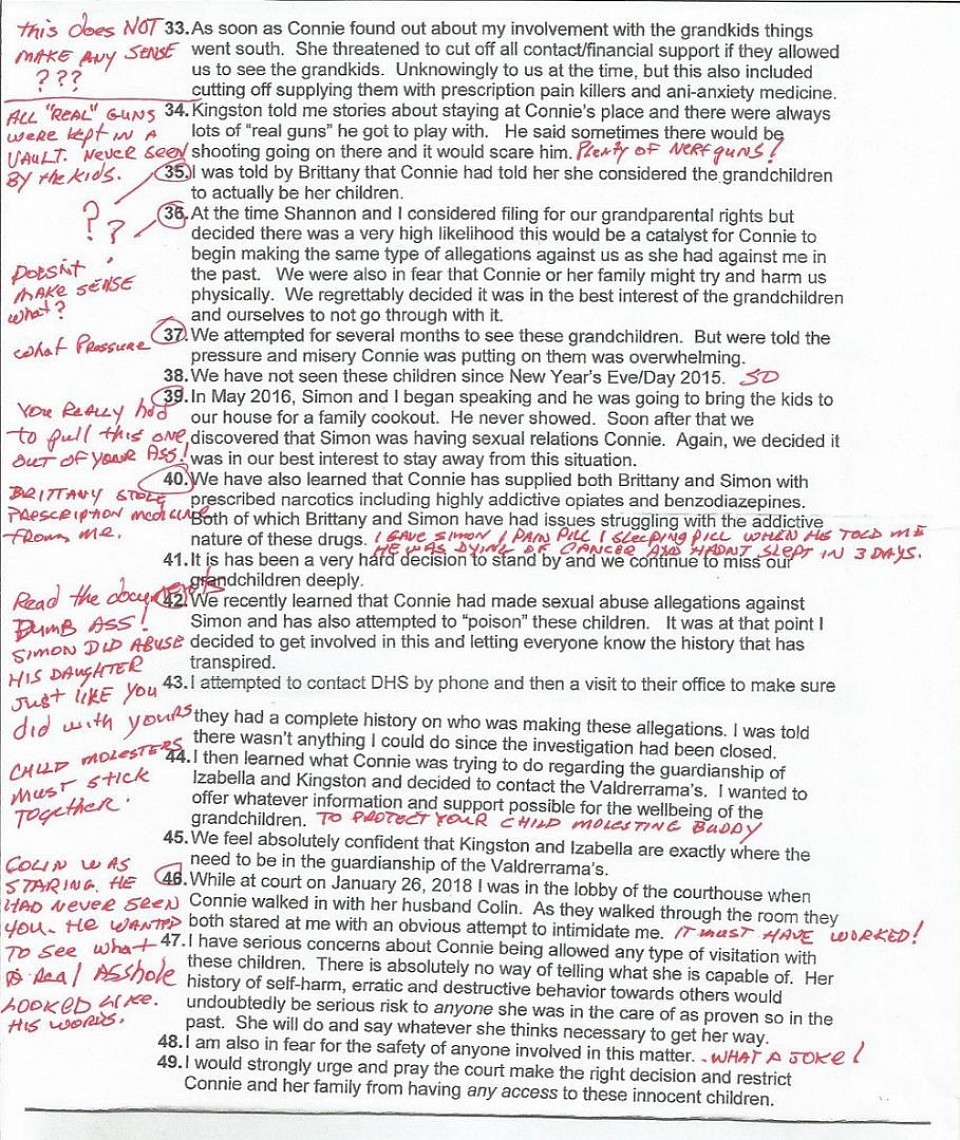 this does NOT
MAKE ANY SENSE
???
33. As soon as Connie found out about my involvement with the grandkids things
went south. She threatened to cut off all contact/financial support if they allowed
us to see the grandkids. Unknowingly to us at the time, but this also included
cutting off supplying them with prescription pain killers and ani-anxiety medicine.
ALL "REAL" GUNS
WERE KEPT IN A
VAULT. NEVER SEEN
BY the kids.
34. Kingston told me stories about staying at Connie's place and there were always
lots of "real guns" he got to play with. He said sometimes there would be
shooting going on there and it would scare him. PLENTY OF NERF GUNS!
35. I was told by Brittany that Connie had told her she considered the grandchildren
to actually be her children.
? ?
36. At the time Shannon and I considered filing for our grandparental rights but
decided there was a very high likelihood this would be a catalyst for Connie to
begin making the same type of allegations against us as she had against me in
the past. We were also in fear that Connie or her family might try and harm us
physically. We regrettably decided it was in the best interest of the grandchildren
and ourselves to not go through with it.
DOESN'T
MAKE SENSE
what?
what Pressure
37. We attempted for several months to see these grandchildren. But were told the
pressure and misery Connie was putting on them was overwhelming.
38. We have not seen these children since New Year's Eve/Day 2015. SO
39. In May 2016, Simon and I began speaking and he was going to bring the kids to
our house for a family cookout. He never showed. Soon after that we
discovered that Simon was having sexual relations Connie. Again, we decided it
was in our best interest to stay away from this situation.
YOU REALLY had
to pull this one
OUT OF YOUR ASS!
40. We have also learned that Connie has supplied both Brittany and Simon with
prescribed narcotics including highly addictive opiates and benzodiazepines.
Both of which Brittany and Simon have had issues struggling with the addictive
nature of these drugs. I GAVE SIMON 1 PAIN PILL 1 SLEEPING PILL WHEN HE TOLD ME
HE WAS DYING OF CANCER AND HADNT SLEPT IN 3 DAYS.
BRITTANY STOLE
PRESCRIPTION MEDICINE
from me.
41. It is has been a very hard decision to stand by and we continue to miss our
grandchildren deeply.
42. We recently learned that Connie had made sexual abuse allegations against
Simon and has also attempted to "poison" these children. It was at that point I
decided to get involved in this and letting everyone know the history that has
transpired.
Read the documents
DUMB ASS!
SIMON DID ABUSE
HIS DAUGHTER
Just LIKE YOU
did with yours
43. I attempted to contact DHS by phone and then a visit to their office to make sure
they had a complete history on who was making these allegations. I was told
there wasn't anything I could do since the investigation had been closed.
CHILD MOLESTERS
MUST STICK
TOGETHER.
44. I then learned what Connie was trying to do regarding the guardianship of
Izabella and Kingston and decided to contact the Valdrerrama's. I wanted to
offer whatever information and support possible for the wellbeing of the
grandchildren. TO PROTECT YOUR CHILD MOLESTING BUDDY
45. We feel absolutely confident that Kingston and Izabella are exactly where the
need to be in the guardianship of the Valdrerrama's.
46. While at court on January 26, 2018 I was in the lobby of the courthouse when
Connie walked in with her husband Colin. As they walked through the room they
both stared at me with an obvious attempt to intimidate me. IT MUST HAVE WORKED!
COLIN WAS
STARING. HE
HAD NEVER SEEN
YOU. HE WANTED
TO SEE what
a Real ASShole
LOOKED LIKE.
HIS WORDS.
47. I have serious concerns about Connie being allowed any type of visitation with
these children. There is absolutely no way of telling what she is capable of. Her
history of self-harm, erratic and destructive behavior towards others would
undoubtedly be serious risk to anyone she was in the care of as proven so in the
past. She will do and say whatever she thinks necessary to get her way.
48. I am also in fear for the safety of anyone involved in this matter. - WHAT A JOKE!
49. I would strongly urge and pray the court make the right decision and restrict
Connie and her family from having any access to these innocent children.